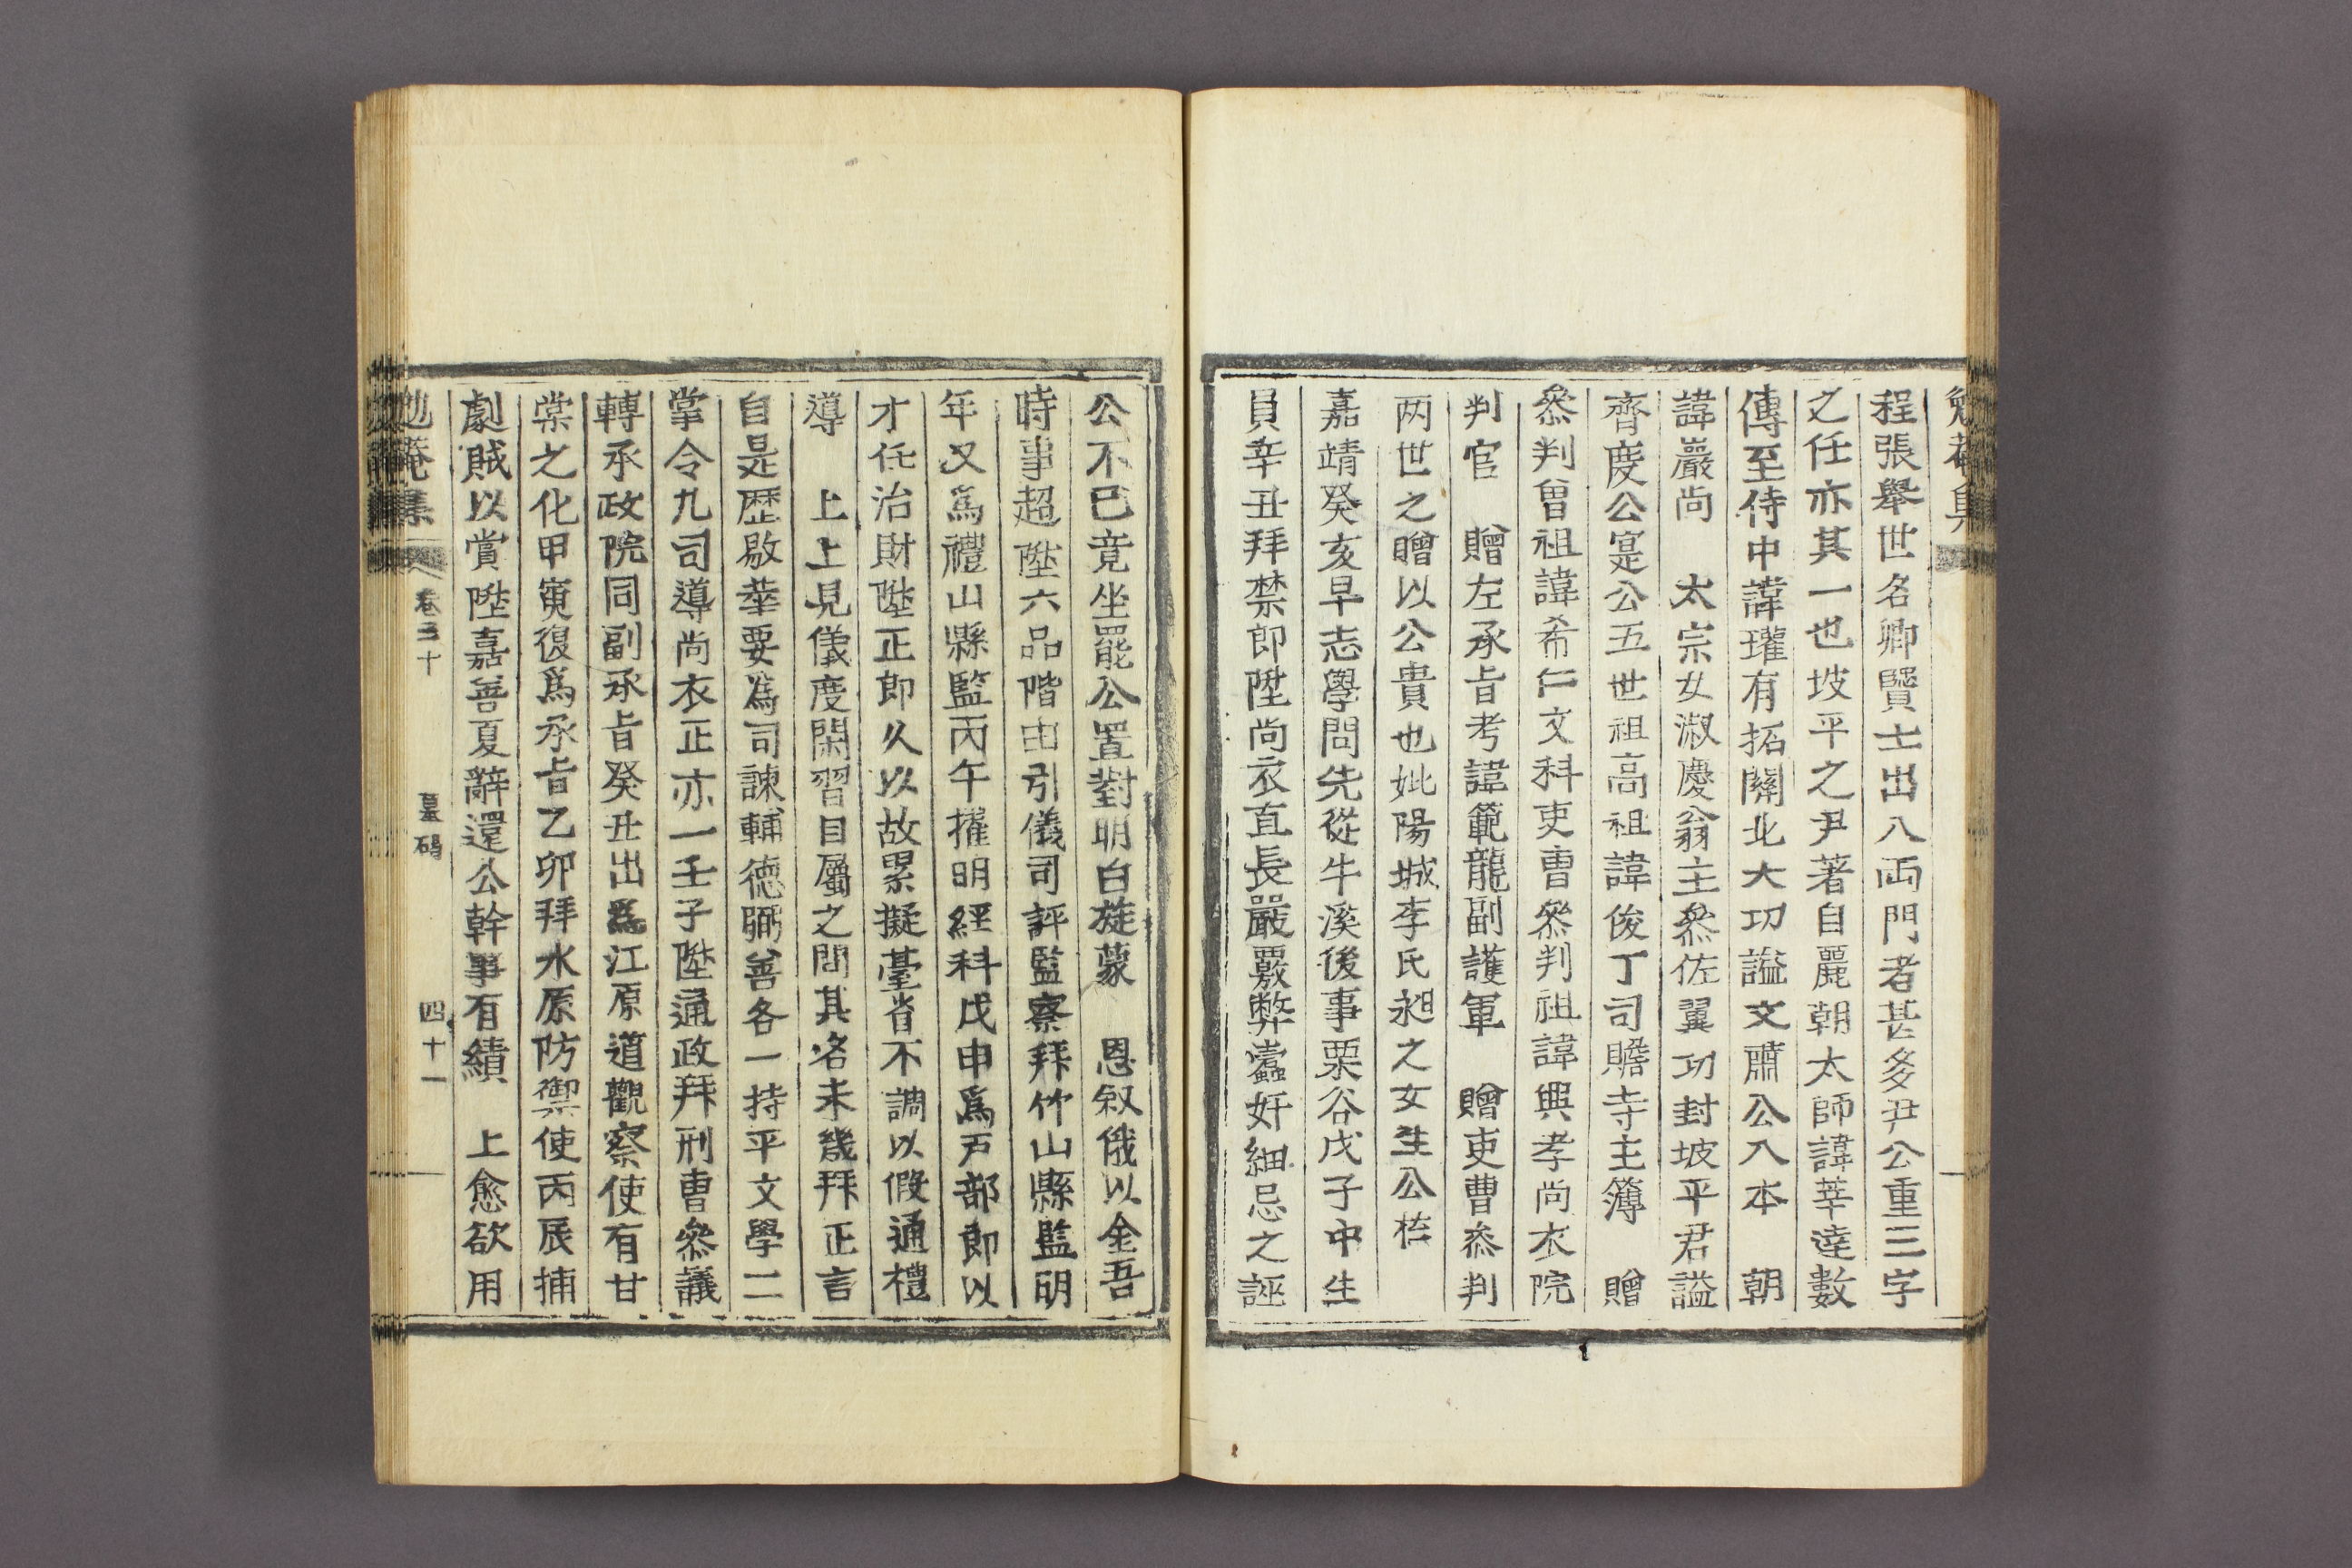 程張舉世名卿賢士出入兩門者甚多尹公重三字
之任亦其一也坡平之尹著自麗朝太師諱莘達數
傳至侍中諱瓘有拓關北大功謚文肅公入本　朝
諱嚴尚　太宗女淑慶翁主叅佐翼功封坡平君謚
齊慶公寔公五世祖高祖諱俊丁司贍寺主簿　贈
叅判曾祖諱希仁文科吏曹叅判祖諱興孝尚衣院
判官　贈左承旨考諱範龍副護軍　贈吏曹叅判
两世之贈以公貴也妣陽城李氏昶之女生公於
嘉靖癸亥早志學問先從牛溪後事栗谷戊子中生
員辛丑拜禁郎陞尚衣直長嚴覈弊蠹奸細忌之誣
公不已竟坐罷公置對明白旋蒙　恩叙俄以金吾
時事超陞六品階由引儀司評監察拜竹山縣監明
年又爲禮山縣監丙午擢明經科戊申爲戶部郎以
才任治財陞正郎久以故累擬臺省不調以假通禮
導　上上見儀度閑習目屬之問其名未幾拜正言
自是歷敭華要為司諫輔德弼善各一持平文學二
掌令九司導尚衣正亦一壬子陞通政拜刑曹叅議
轉承政院同副承旨癸丑出爲江原道觀察使有甘
棠之化甲寅復爲承旨乙卯拜水原防禦使丙辰捕
劇賊以賞陞嘉善夏辭還公幹事有績　上愈欲用
勉菴集　卷三十　墓碣　四十一